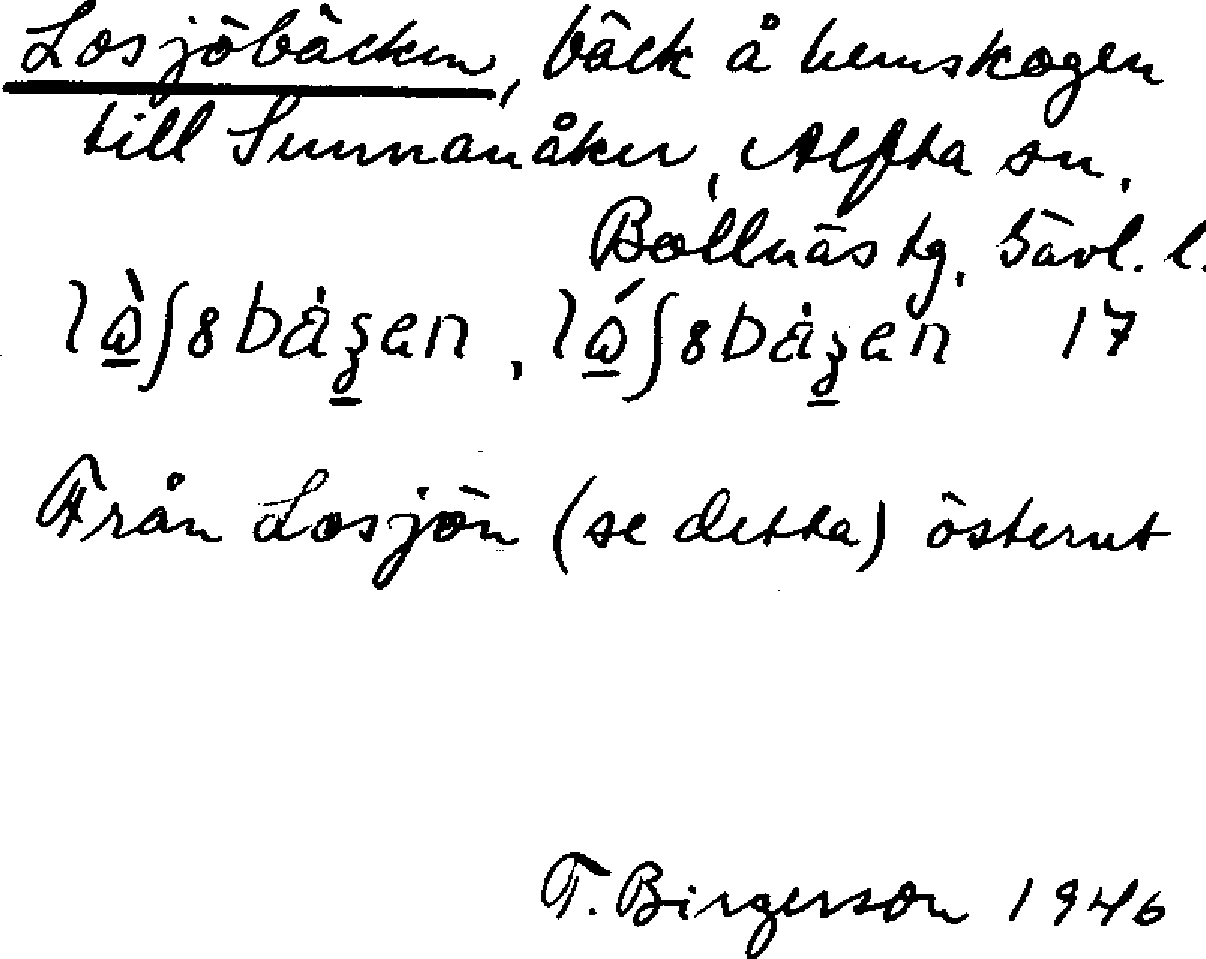 Losjöbäcken, bäck å hemskogen
till Sunnanåker, Alfta sn,
Bollnäs tg, Gävl. l.
17
Från Losjön (se detta) österut
T. Birgerson 1946